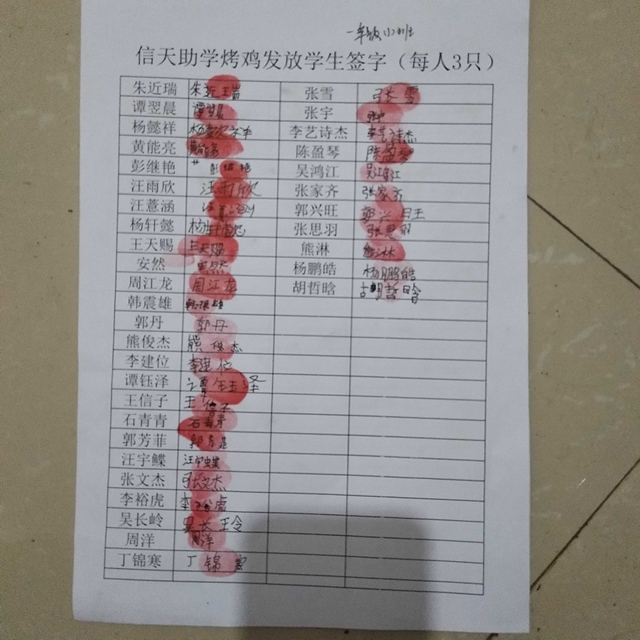 一年级(1)班
信天助学烤鸡发放学生签字（每人3只）
朱近瑞 朱近瑞 张雪 张雪
谭翌晨 谭翌晨 张宇 张宇
杨懿祥 杨懿祥 李艺诗杰 李艺诗杰
黄能亮 黄能亮 陈盈琴 陈盈琴
彭继艳 彭继艳 吴鸿江 吴鸿江
汪雨欣 汪雨欣 张家齐 张家齐
汪薏涵 郭兴旺 郭兴旺
杨轩懿 杨轩懿 张思羽 张思羽
王天赐 王天赐 熊淋 熊淋
安然 安然 杨鹏皓 杨鹏皓
周江龙 周江龙 胡哲晗 胡哲晗
韩震雄 韩震雄
郭丹 郭丹
熊俊杰 熊俊杰
李建位 李建位
谭钰泽 谭钰泽
王信子 王信子
石青青 石青青
郭芳菲 郭芳菲
汪宇鲽 汪宇蝶
张文杰 张文杰
李裕虎 李裕虎
吴长岭 吴长岭
周洋 周洋
丁锦寒 丁锦寒